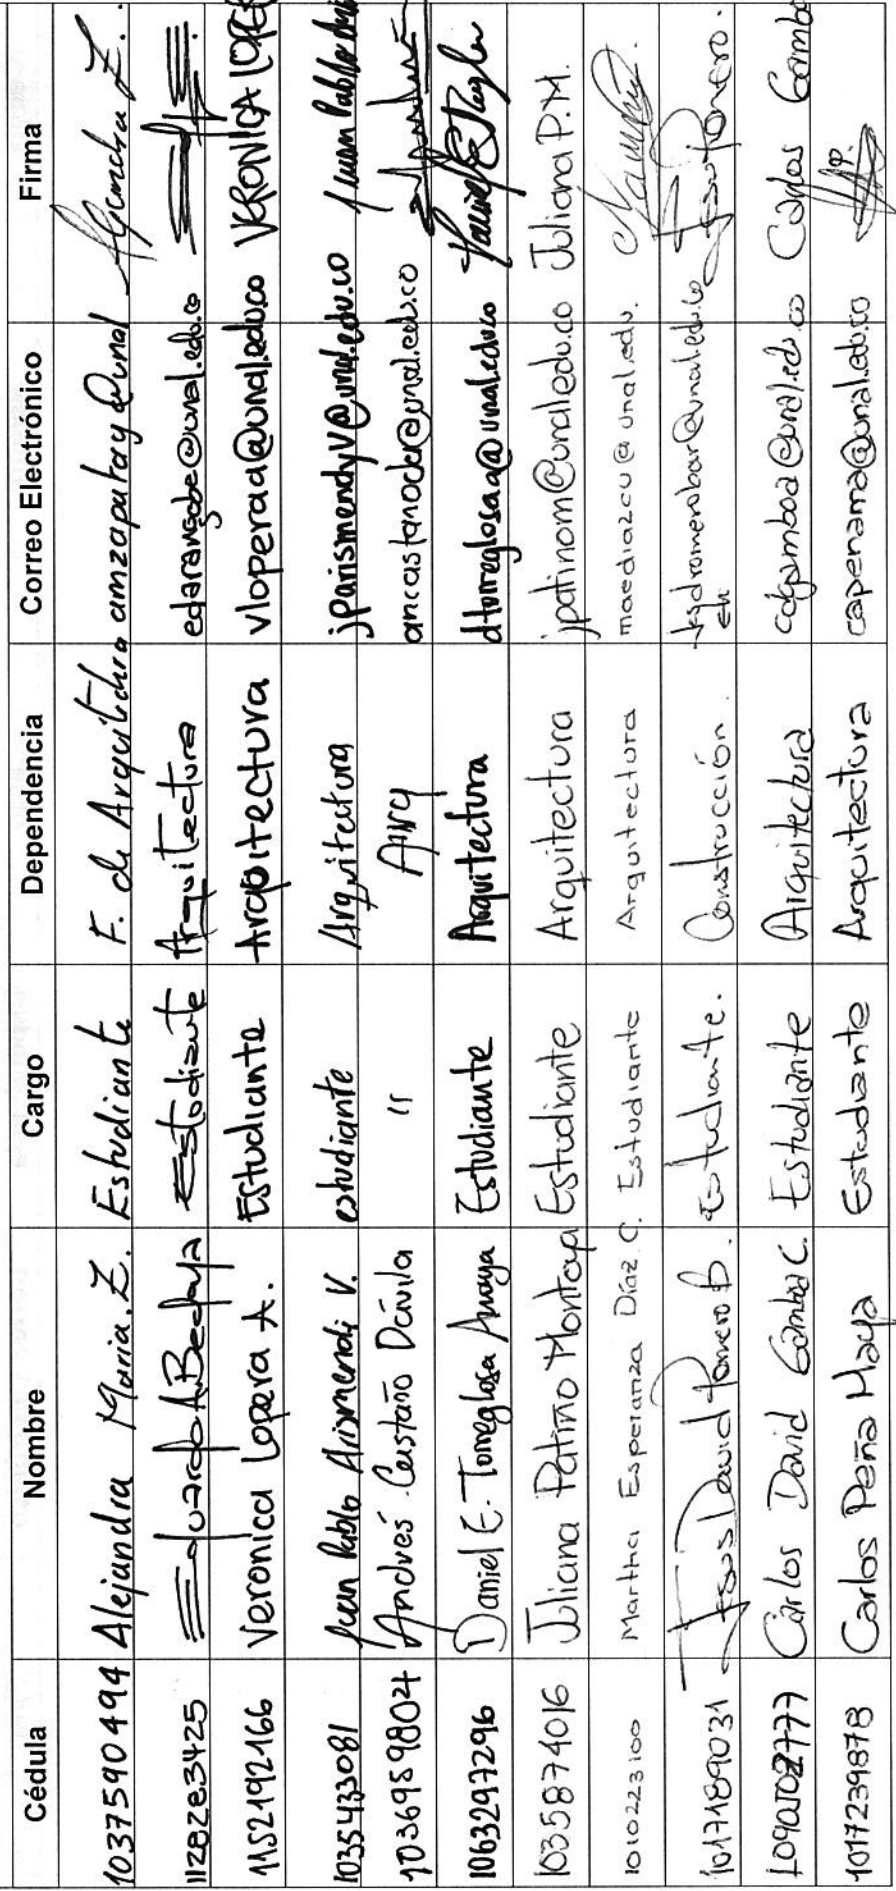 Cédula Nombre Cargo Dependencia Correo Electrónico Firma
1037590494 Alejandra Maria. Z. Estudiante F. de Arquitectura amzapatay@unal
1128283425 Eduardo A. Bedoya Estudiante Arquitectura edarangobe@unal.edu.co
1152192166 Veronica Lopera A. Estudiante Arquitectura vloperaa@unal.edu.co VERONICA LOPERA
1035433081 Juan Pablo Arismendi V. estudiante Arquitectura jparismendyv@unal.edu.co Juan Pablo
1036959804 Andrés Castaño Dávila " Arq ancastanoda@unal.edu.co
1063297296 Daniel E. Torreglosa Amaya Estudiante Arquitectura dtorreglosaa@unal.edu.co
1035874016 Juliana Patiño Montoya Estudiante Arquitectura jpatinom@unal.edu.co Juliana P.M.
1010223100 Martha Esperanza Díaz C. Estudiante Arquitectura maediazcu@unal.edu.
1017189031 Jesus David Romero B. Estudiante. Construcción. jesdromerobar@unal.edu.co
Carlos David Gamboa C. Estudiante Arquitectura cdgamboa@unal.edu.co Carlos Gamboa
1017239878 Carlos Peña Maya Estudiante Arquitectura capenama@unal.edu.co